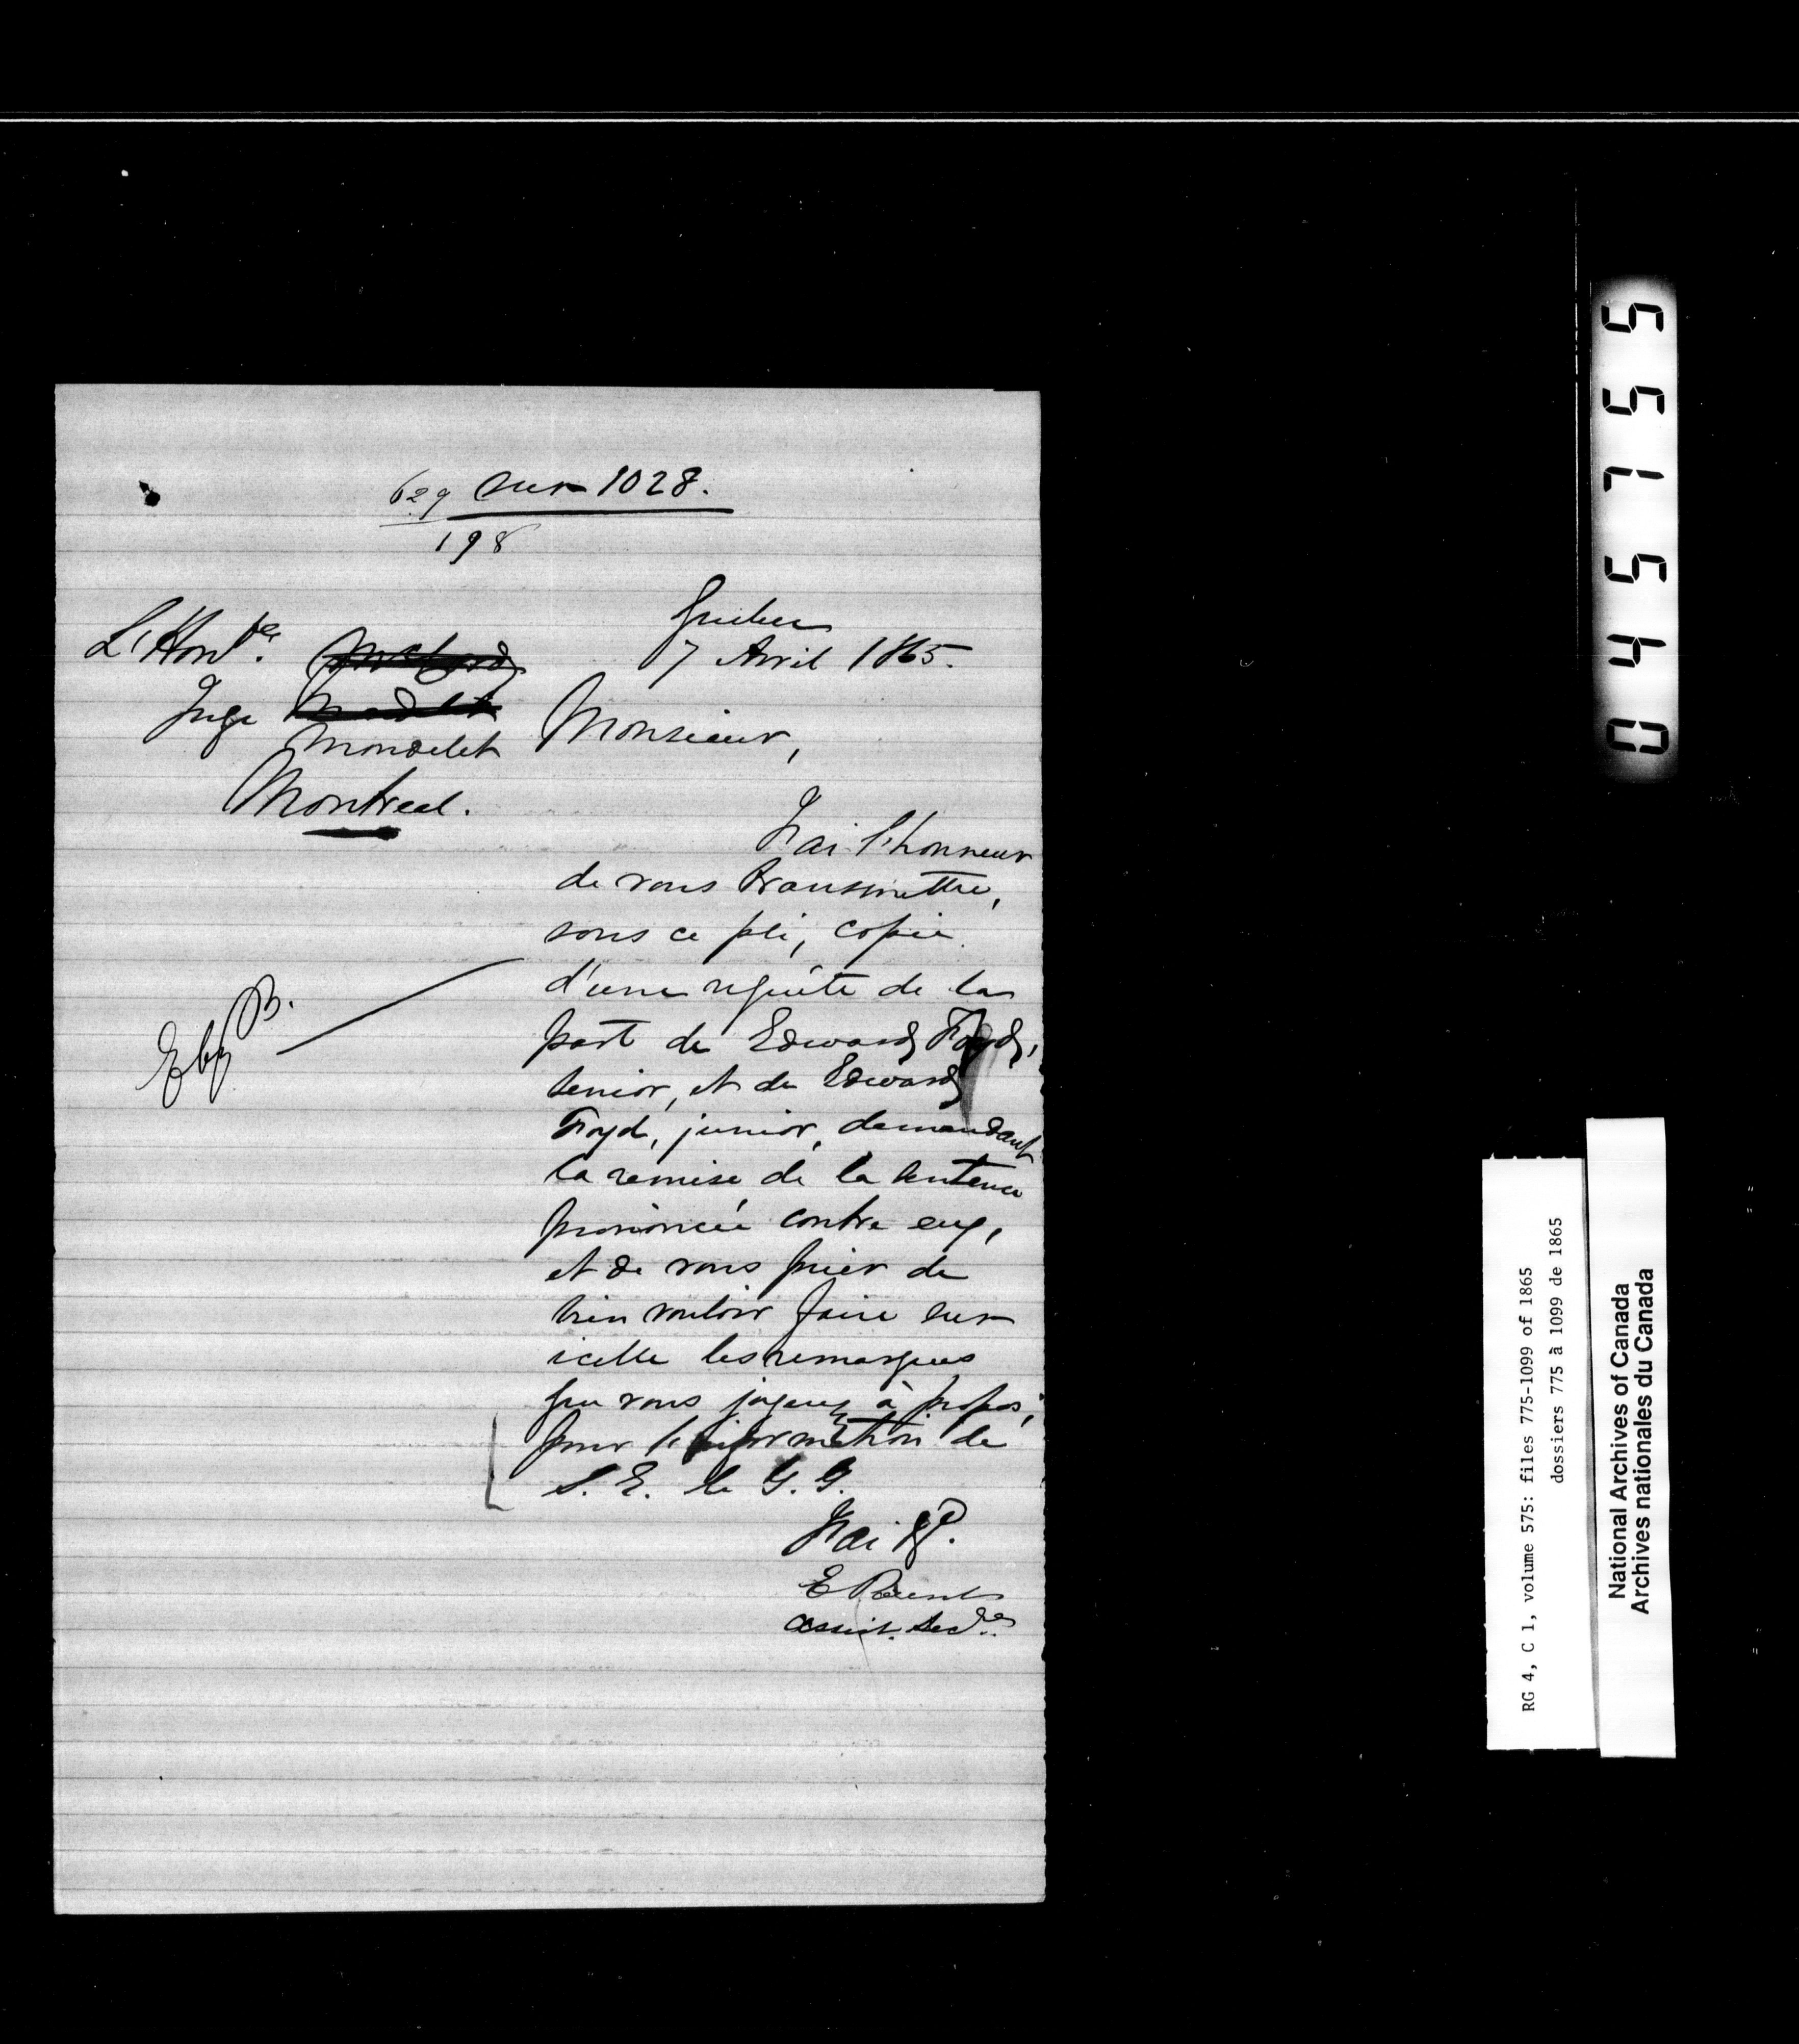 629 sur 1028.
198
Quebec
7 Avril 1865.
L'Honble.
Juge
Mondelet
Montreal.
Monsieur,
J'ai l'honneur
de vous transmettre,
sous ce pli, copie
d'une requête de la
part de Edward Foyd,
senior, et de Edward
Foyd, junior, demandant
la remise de la sentence
prononcée contre eux,
et de vous prier de
bien vouloir faire sur
icelle les remarques
que vous jugerez à propos,
pour l'information de
S. E. le G. G.
J'ai &c.
E Parent
assist. Secre.
55
0 4 5 1 5 5
RG 4, C 1, volume 575: files 775-1099 of 1865
dossiers 775 à 1099 de 1865
National Archives of Canada
Archives nationales du Canada